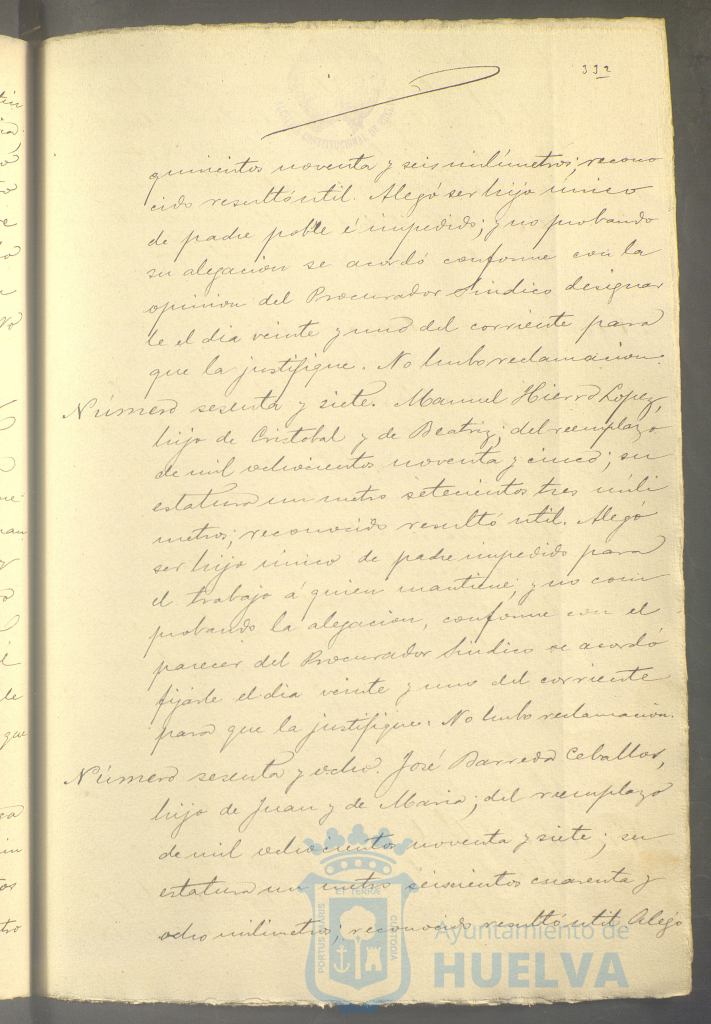 332
quinientos noventa y seis milímetros; recono
cido resultó útil. Alegó ser hijo único
de padre pobre é impedido; y no probando
su alegacion se acordó conforme con la
opinion del Procurador Síndico designar
le el dia veinte y uno del corriente para
que la justifique. No hubo reclamacion.
Número sesenta y siete. Manuel Hierro Lopez,
hijo de Cristobal y de Beatriz; del reemplazo
de mil ochocientos noventa y cinco; su
estatura un metro setecientos tres milí
metros; reconocido resultó util. Alegó
ser hijo único de padre impedido para
el trabajo á quien mantiene; y no com
probando la alegacion, conforme con el
parecer del Procurador Síndico se acordó
fijarle el dia veinte y uno del corriente
para que la justifique. No hubo reclamacion.
Número sesenta y ocho. José Barreda Ceballos,
hijo de Juan y de Maria; del reemplazo
de mil ochocientos noventa y siete; su
estatura un metro seiscientos cuarenta y
ocho milimetros; reconocido resultó util. Alegó
PORTUS MARIS
ET TERRAE
CUSTODIA
Ayuntamiento de
HUELVA